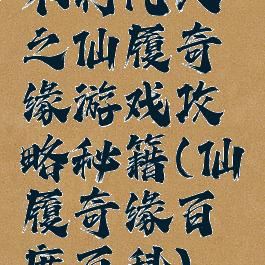 之仙履奇
缘游戏攻
略秘籍(仙
履奇缘百
度百科)